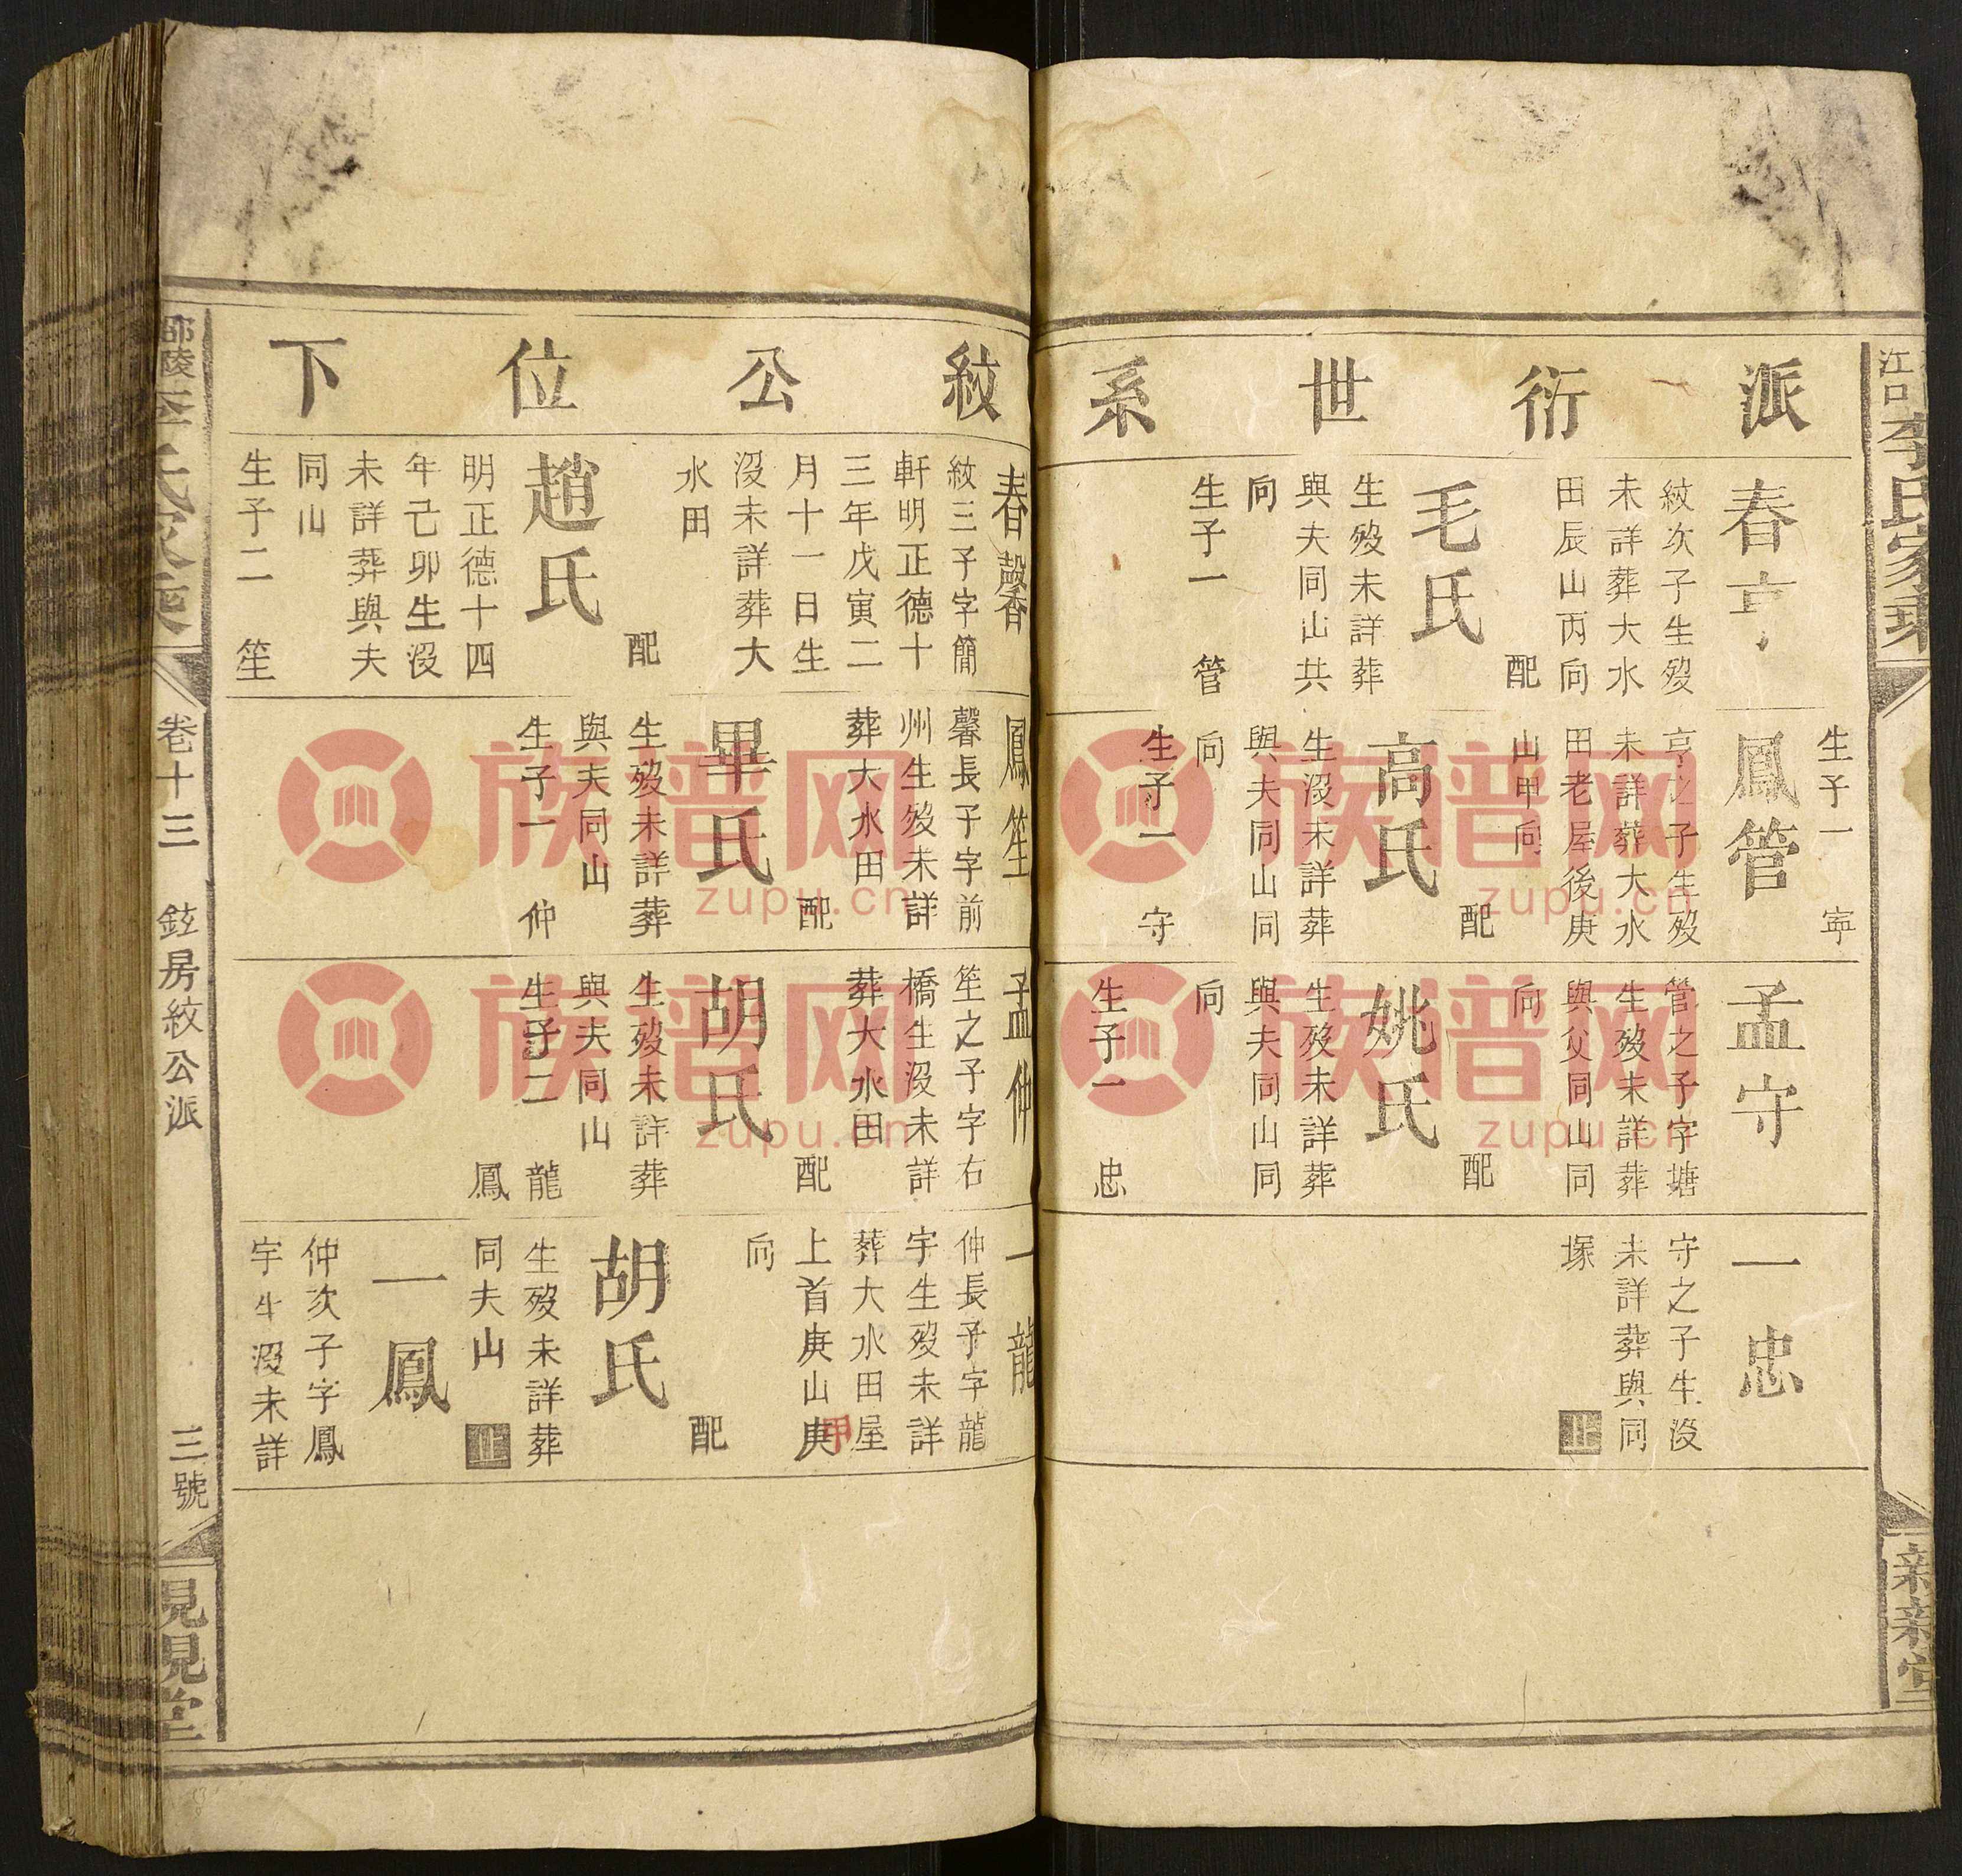 江口
李氏家乘
新新堂
派衍世系
春亨
紋次子生歿
未詳葬大水
田辰山丙向
配
毛氏
生歿未詳葬
與夫同山共
向
生子一 管
生子一 寧
鳳管
亨之子生歿
未詳葬大水
田老屋後庚
山甲向
配
高氏
生沒未詳葬
與夫同山同
向
生子一 守
孟守
管之子字塘
生歿未詳葬
與父同山同
向
配
姚氏
生歿未詳葬
與夫同山同
向
生子一 忠
一忠
守之子生沒
未詳葬與同
塚 止
紋公位下
春馨
紋三子字簡
軒明正德十
三年戊寅二
月十一日生
沒未詳葬大
水田
配
趙氏
明正德十四
年己卯生沒
未詳葬與夫
同山
生子二 笙
鳳笙
馨長子字前
州生歿未詳
葬大水田
配
畢氏
生歿未詳葬
與夫同山
生子一 仲
孟仲
笙之子字右
橋生沒未詳
葬大水田
配
胡氏
生歿未詳葬
與夫同山
生子二 龍
鳳
一龍
仲長子字龍
宇生歿未詳
葬大水田屋
上首庚山庚
甲
向
配
胡氏
生歿未詳葬
同夫山 止
一鳳
仲次子字鳳
宇生沒未詳
邵陵李氏家乘
卷十三 鉉房紋公派
三號
見見堂
族谱网
zupu.cn
族谱网
zupu.cn
族谱网
zupu.cn
族谱网
zupu.cn